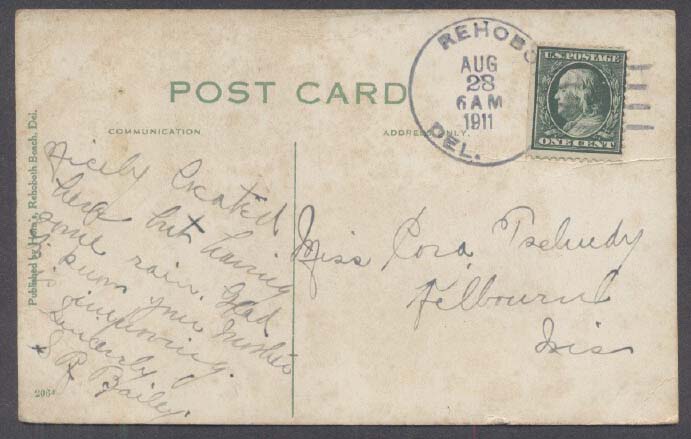 POST CARD
COMMUNICATION
ADDRESS ONLY.
REHOBO
AUG
28
6 AM
1911
DEL.
U.S. POSTAGE
ONE CENT
Published by Horn's, Rehoboth Beach, Del.
Nicely located
here but having
some rain. Glad
your Mother
is improving.
Sincerely
S. R. Bailey.
Miss Cora Tschudy
Wis
206